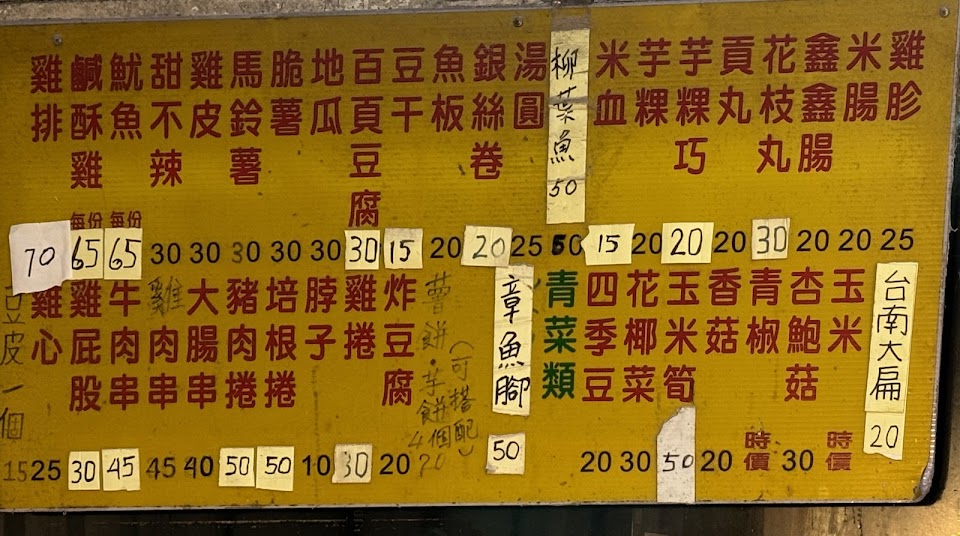 雞胗 25
米腸 20
鑫鑫腸 20
花枝丸 30
貢丸 20
芋粿巧 20
芋粿 20
米血 15
柳葉魚 50 50
湯圓 25
銀絲卷 20
魚板 20
豆干 15
百頁豆腐 30
地瓜 30
脆薯 30
馬鈴薯 30
雞皮 30
甜不辣 30
魷魚 每份 65
鹹酥雞 每份 65
雞排 70
台南大扁 20
玉米 時價
杏鮑菇 30
青椒 時價
香菇 20
玉米筍 50
花椰菜 30
四季豆 20
青菜類
章魚腳 50
(可搭配)
薯餅·芋餅 4個 70
炸豆腐 20
雞捲 30
脖子 10
培根捲 50
豬肉捲 50
大腸串 40
雞肉串 45
牛肉串 45
雞屁股 30
雞心 25
豆皮一個 15